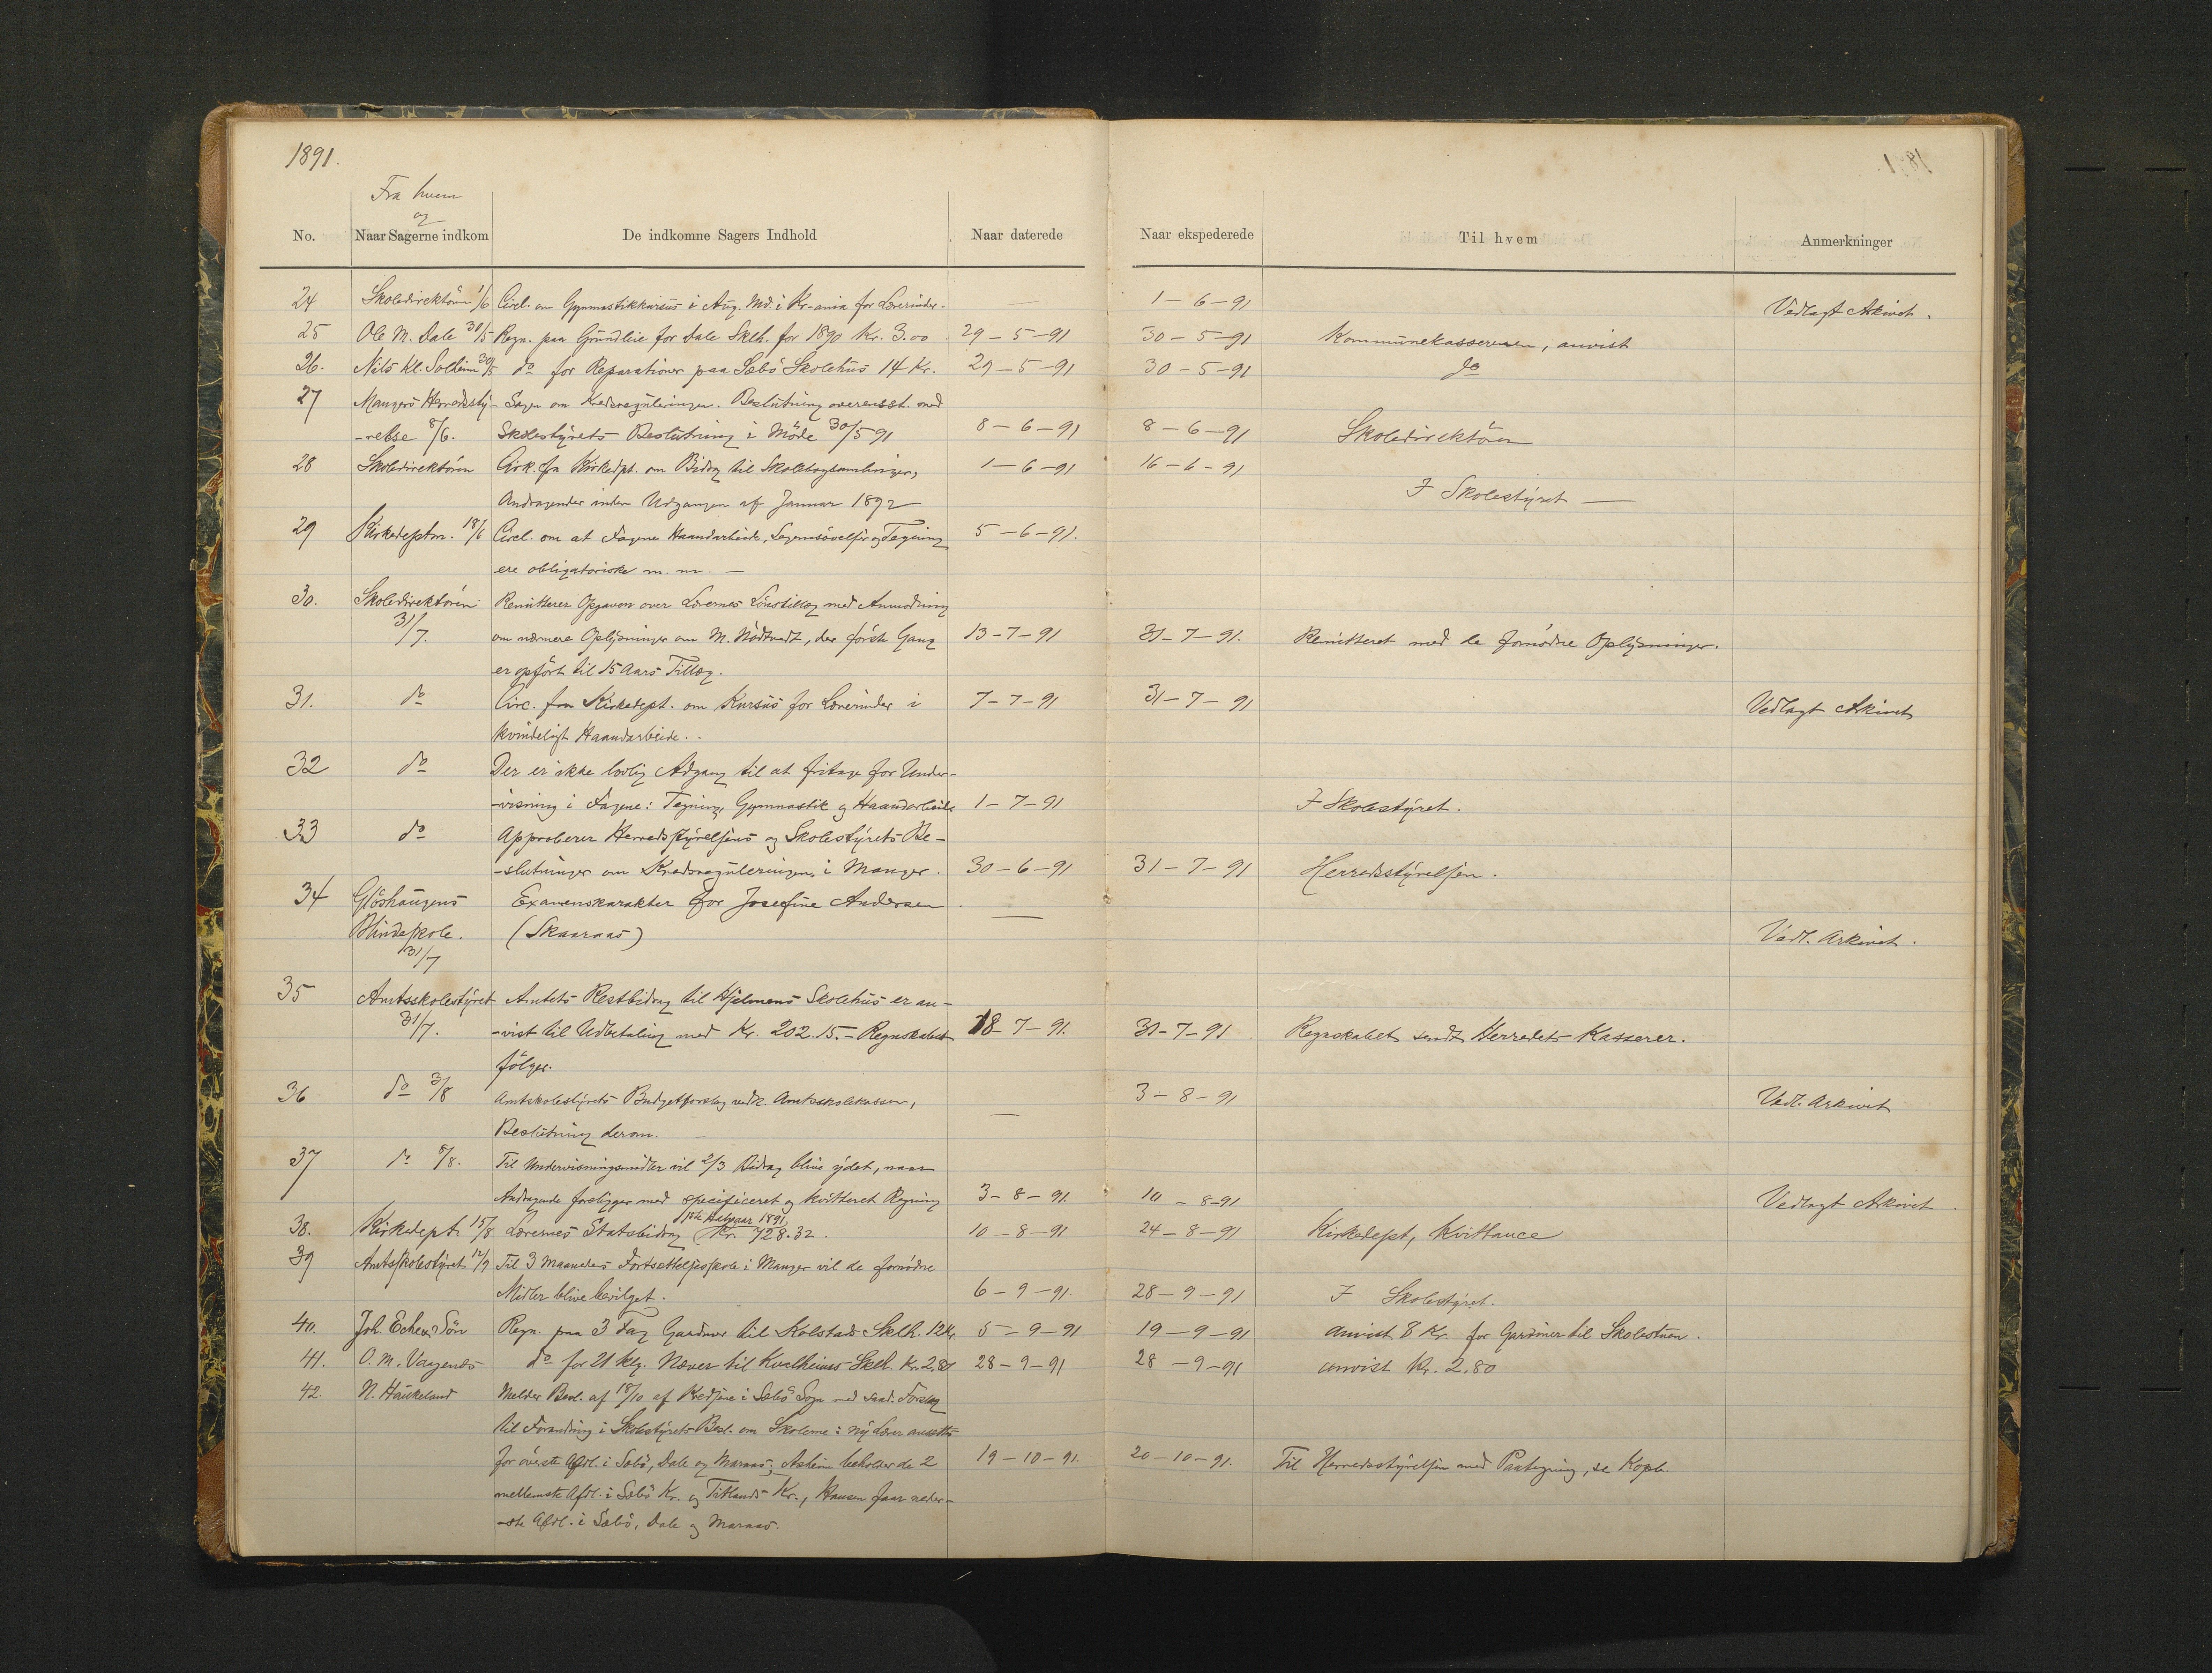 1891.
Fra hvem
og
No. Naar Sagerne indkom De indkomne Sagers Indhold Naar daterede Naar ekspederede Til hvem Anmerkninger
24 Skoledirektören 1/6 Circl. om Gymnastikkursus i Aug. Md. i Kr-ania for Lærerinder. — 1-6-91 Vedlagt Arkivet.
25 Ole M. Dale 30/5 Regn. paa Grundleie for Dale Sklh. for 1890 Kr. 3.00 29-5-91 30-5-91 Kommunekassereren, anvist
26. Nils Kl. Solheim 30/5 do for Reparationer paa Sæbö Skolehus 14 Kr. 29-5-91 30-5-91 do
27 Mangers Herredssty- Sagen om Kredsreguleringen. Beslutning overensst. med
-relse 8/6. Skolestyrets Beslutning i Möde 30/5 91 8-6-91 8-6-91 Skoledirektören
28 Skoledirektören Cirk. fra Kirkedpt. om Bidrag til Skolebogsamlinger, 1-6-91 16-6-91
Andragender inden Udgangen af Januar 1892 I Skolestyret —
29 Kirkedeptm. 18/6 Circl. om at Fagene Haandarbeide, Legemsövelser og Tegning 5-6-91.
ere obligatoriske m. m. —
30. Skoledirektören Remitterer Opgaven over Lærernes Lönstillæg med Anmodning
31/7. om nærmere Oplysninger om M. Mödtvedt, der förste Gang 13-7-91 31-7-91. Remitteret med de fornödne Oplysninger.
er opfört til 15 Aars Tillæg.
31. do Circ. fra Kirkedept. om Kursus for Lærerinder i 7-7-91 31-7-91 Vedlagt Arkivet
kvindeligt Haandarbeide.
32 do Der er ikke lovlig Adgang til at fritage for Under-
-visning i Fagene: Tegning, Gymnastik og Haandarbeide 1-7-91 I Skolestyret.
33 do Approberer Herredsstyrelsens og Skolestyrets Be-
-slutninger om Kredsreguleringen i Manger. 30-6-91 31-7-91 Herredsstyrelsen.
34 Glöshaugens Examenskarakter for Josefine Andersen —
Blindeskole. (Skaaraas) Vedl. Arkivet.
31/7
35 Amtsskolestyret Amtets Restbidrag til Hjelmens Skolehus er an-
31/7. -vist til Udbetaling med Kr. 202.15.- Regnskabet 18-7-91. 31-7-91 Regnskabet sendt Herredets Kasserer.
fölger.
36 do 3/8 Amtskolestyrets Budgetforslag vedk. Amtsskolekassen, — 3-8-91 Vedl. Arkivet
Beslutning derom. —
37 do 8/8. Til Undervisningsmidler vil 2/3 Bidrag blive ydet, naar
Andragende foreligger med specificeret og kvitteret Regning 3-8-91. 10-8-91 Vedlagt Arkivet.
1ste Halvaar 1891
38. Kirkedept. 15/8 Lærernes Statsbidrag Kr. 728.32. 10-8-91 24-8-91 Kirkedept, Kvittance
39 Amtsskolestyret 12/9 Til 3 Maaneders Fortsættelsesskole i Manger vil de fornödne
Midler blive bevilget. 6-9-91. 28-9-91 I Skolestyret.
40. Joh. Echer Sön Regn. paa 3 Fag Gardiner til Kolstads Sklh. 12 Kr. 5-9-91 19-9-91 anvist 8 Kr. for Gardiner til Skolestuen.
41. O. M. Vaagenes do for 21 klg. Næver til Kvalheims Sklh. Kr. 2,80 28-9-91 28-9-91 anvist Kr. 2.80
42. N. Haukeland Melder Besl. af 18/10 af Kredsene i Sæbö Sogn med Forslag
til Forandring i Skolestyrets Besl. om Skolerne: ny Lærer ansættes
for överste Afdl. i Sæbö, Dale og Maraas; Askeim beholder de 2 19-10-91. 20-10-91. Til Herredsstyrelsen med Paategning, se Kopb.
mellemste Afdl. i Sæbö Kr. og Titlands Kr., Hansen faar neder-
-ste Afdl. i Sæbö, Dale og Maraas.